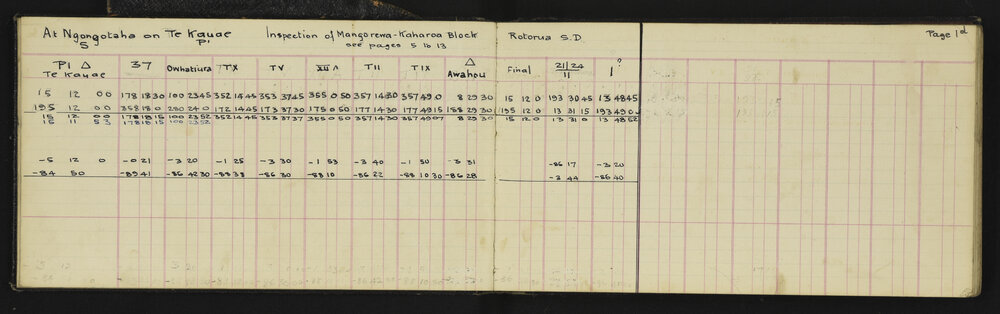 At Ngongotaha on Te Kauae Inspection of Mangorewa-Kaharoa Block Rotorua S.D. Page 1d
S P1 see pages 5 to 13
P1 △ 37 Owhatiura TX TV XIII A TII TIX △ Final 21/24 1?
Te Kauae Awahou 11
15 12 00 178 18 30 100 23 45 352 14 45 353 37 45 355 0 50 357 14 30 357 49 0 8 29 30 15 12 0 193 30 45 13 48 45
195 12 00 358 18 0 280 24 0 172 14 45 173 37 30 175 0 50 177 14 30 177 49 15 188 29 30 195 12 0 13 31 15 193 49 0
15 12 00 178 18 15 100 23 52 352 14 45 353 37 37 355 0 50 357 14 30 357 49 07 8 29 30 15 12 0 13 31 0 13 48 52
15 11 53 178 18 15 100 23 52
-5 12 0 -0 21 -3 20 -1 25 -3 30 -1 53 -3 40 -1 50 -3 31 -86 17 -3 20
-84 50 -89 41 -86 42 30 -88 38 -86 30 -88 10 -86 22 -88 10 30 -86 28 -3 44 -86 40